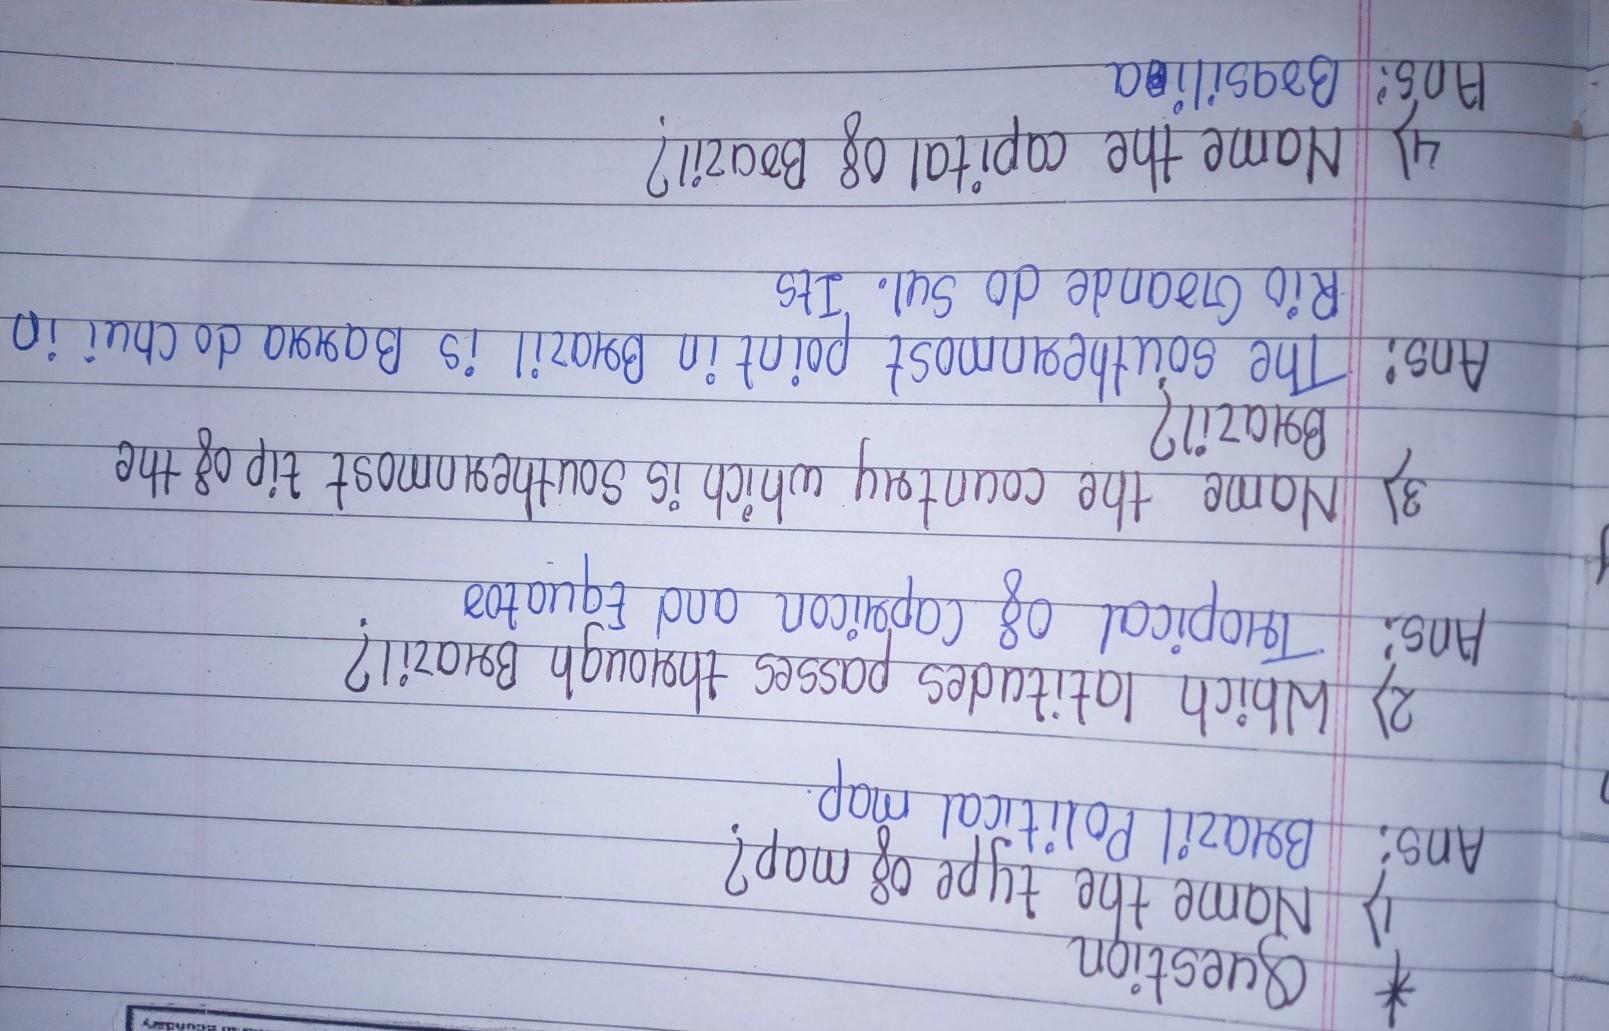 * Question
1) Name the type of map?
Ans: Brazil Political map.
2) Which latitudes passes through Brazil?
Ans: Tropical of Capricon and Equator
3) Name the country which is southernmost tip of the
Brazil?
Ans: The southernmost point in Brazil is Barra do Chui in
Rio Grande do Sul. Its
4) Name the capital of Brazil?
Ans: Brasilia